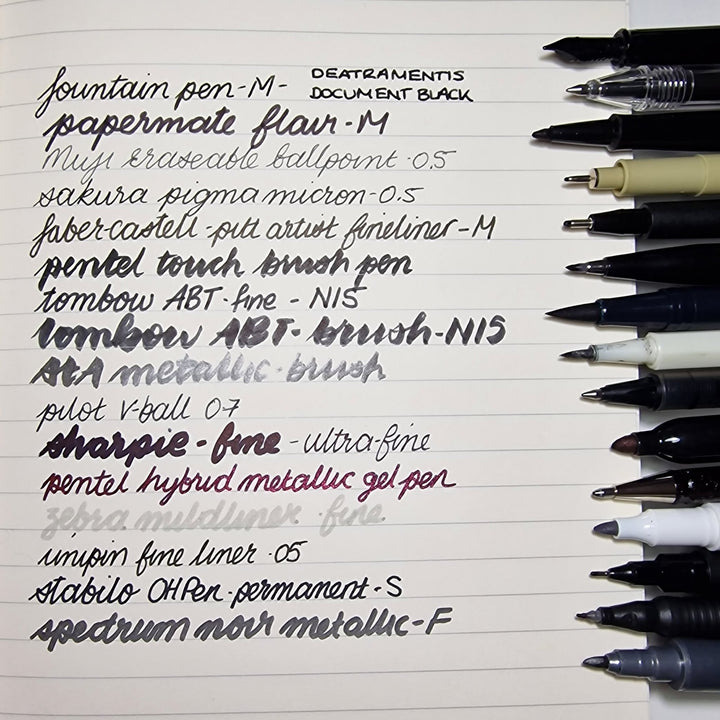 fountain pen-M- DEATRAMENTIS DOCUMENT BLACK
papermate flair-M
Muji eraseable ballpoint -0.5
sakura pigma micron-0.5
faber-castell -pitt artist fineliner-M
pentel touch brush pen
tombow ABT-fine - N15
tombow ABT- brush-N15
StA metallic-brush
pilot V-ball 0.7
sharpie - fine - ultra-fine
pentel hybrid metallic gel pen
zebra mildliner -fine
unipin fine liner -05
stabilo OHPen-permanent-S
spectrum noir metallic-F